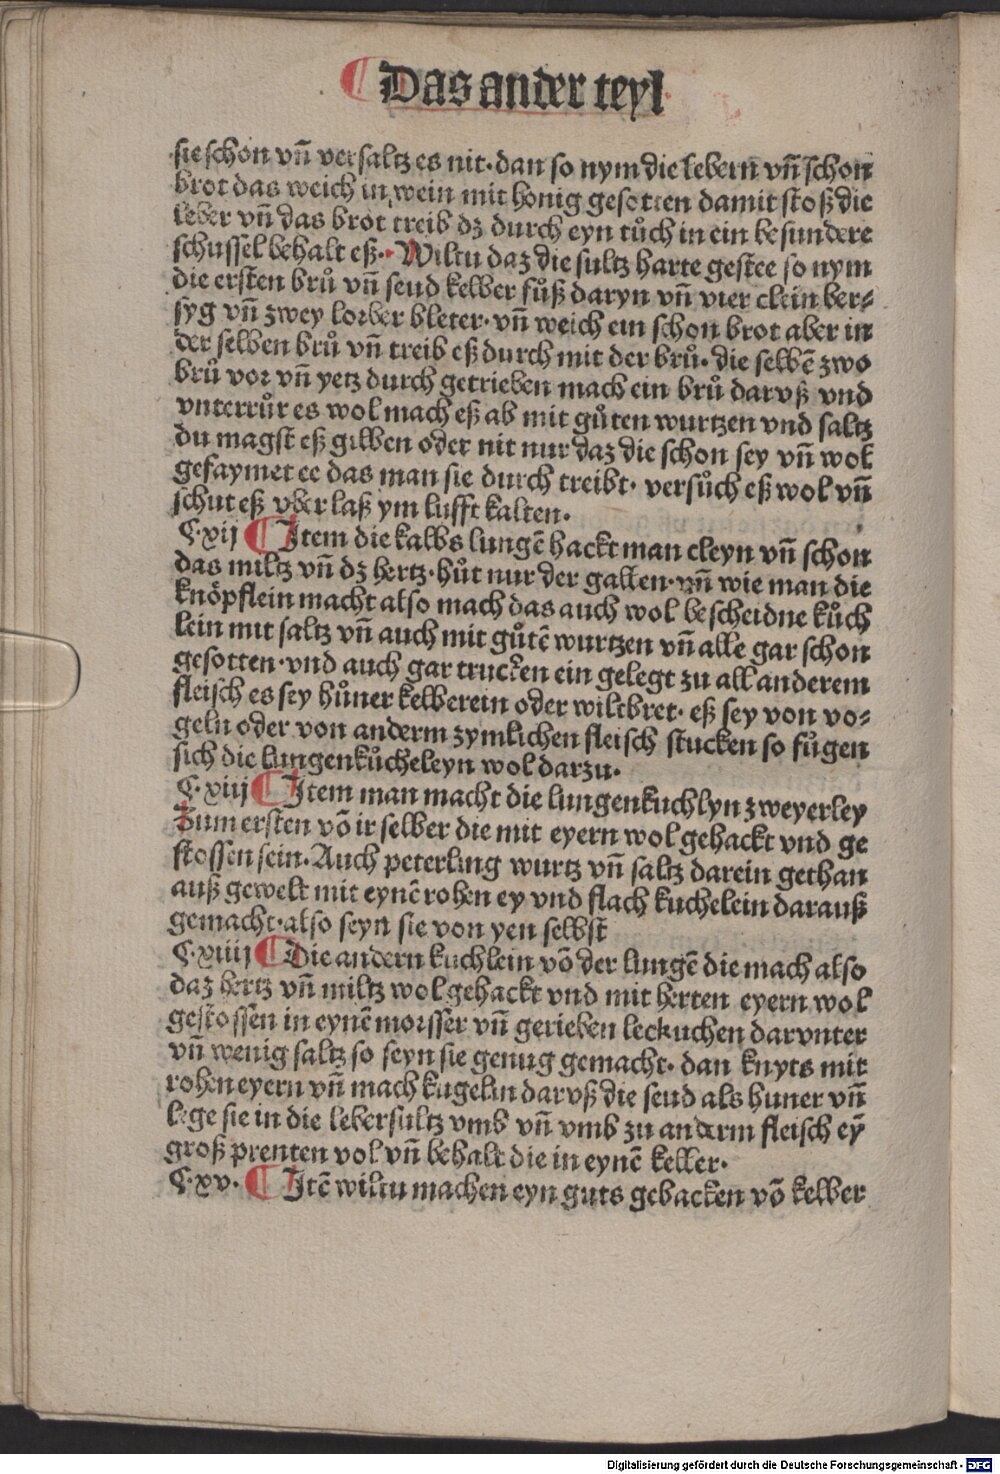 ¶ Das ander teyl
sie schon vn̄ versaltz es nit· dan so nym die lebern vn̄ schon
brot das weich in wein mit honig gesotten damit stoß die
leber vn̄ das brot treib dz durch eyn tůch in ein besundere
schussel behalt eß· Wiltu daz die sultz harte gestee so nym
die ersten brů vn̄ seud kelber fůß daryn vn̄ vier clein ber⸗
syg vn̄ zwey lorber bleter· vn̄ weich ein schon brot aber in
der selben brů vn̄ treib eß durch mit der brů· die selbē zwo
brů vor vn̄ yetz durch getrieben mach ein brů darvß vnd
vnterrůr es wol mach eß ab mit gůten wurtzen vnd saltz
du magst eß gilben oder nit nur daz die schon sey vn̄ wol
gefaymet ee das man sie durch treibt· versůch eß wol vn̄
schut eß vber laß ym lufft kalten·
C·xij ¶ Item die kalbs lungē hackt man cleyn vn̄ schon
das miltz vn̄ dz hertz· hůt nur der gallen· vn̄ wie man die
knöpflein macht also mach das auch wol bescheidne kůch
lein mit saltz vn̄ auch mit gůtē wurtzen vn̄ alle gar schon
gesotten· vnd auch gar trucken ein gelegt zu all anderem
fleisch es sey hůner kelberein oder wiltbret· eß sey von vo⸗
geln oder von anderm zymlichen fleisch stucken so fůgen
sich die lungenkůcheleyn wol darzu·
C·xiij ¶ Item man macht die lungenkuchlyn zweyerley
Zum ersten vō ir selber die mit eyern wol gehackt vnd ge
stossen sein· Auch peterling wurtz vn̄ saltz darein gethan
auß gewelt mit eynē rohen ey vnd flach kuchelein darauß
gemacht· also seyn sie von yen selbst
C·xiiij ¶ Die andern kuchlein vō der lungē die mach also
daz hertz vn̄ miltz wol gehackt vnd mit herten eyern wol
gestossen in eynē morsser vn̄ gerieben leckuchen darvnter
vn̄ wenig saltz so seyn sie genug gemacht· dan knyts mit
rohen eyern vn̄ mach kugelin darvß die seud als huner vn̄
lege sie in die lebersultz vmb vn̄ vmb zu anderm fleisch eȳ
groß prenten vol vn̄ behalt die in eynē keller·
C·xv· ¶ Itē wiltu machen eyn guts gebacken vō kelber
Digitalisierung gefördert durch die Deutsche Forschungsgemeinschaft - DFG